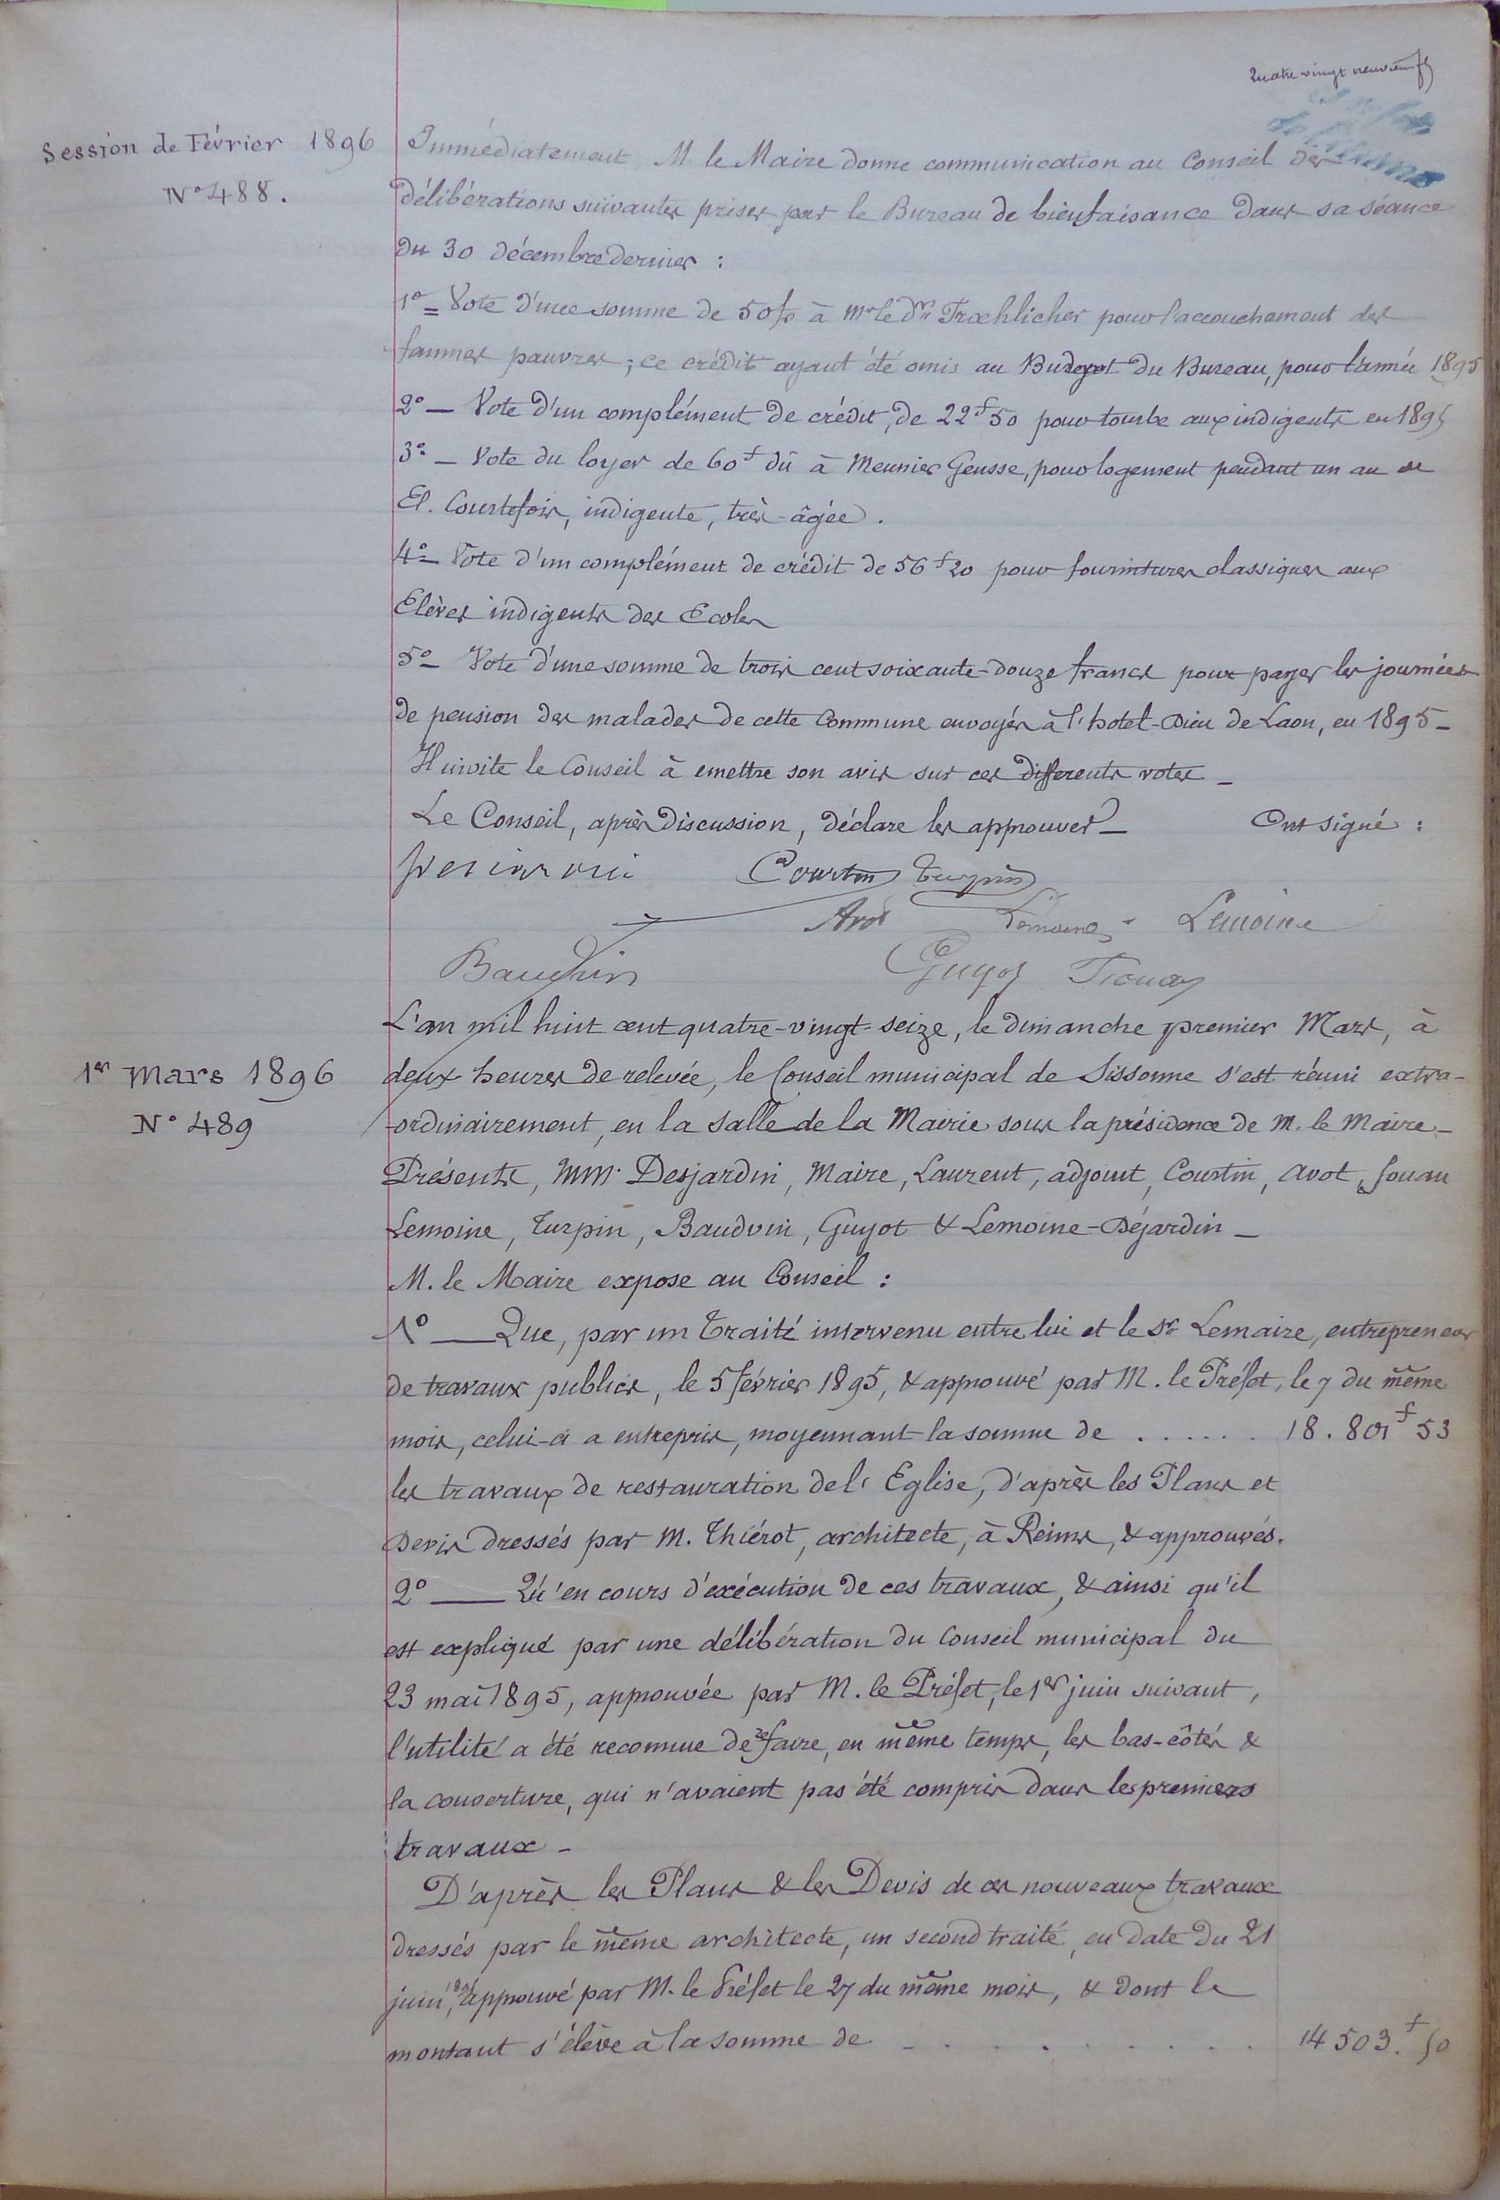 Quatre-vingt neuvième ft
Session de Février 1896
N° 488.
Immédiatement M le Maire donne communication au Conseil des
délibérations suivantes prises par le Bureau de bienfaisance dans sa séance
du 30 décembre dernier :
1° = Vote d'une somme de 50f à Mr le Dr Froehlicher pour l'accouchement des
femmes pauvres ; ce crédit ayant été omis au Budget du Bureau, pour l'année 1895
2° — Vote d'un complément de crédit, de 22f50 pour tourbe aux indigents en 1895
3° — Vote du loyer de 60f dû à Meunier Geusse, pour logement pendant un an de
El. Courtefois, indigente, très-âgée.
4° — Vote d'un complément de crédit de 56f20 pour fournitures classiques aux
Elèves indigents des Ecoles
5° — Vote d'une somme de trois cent soixante-douze francs pour payer les journées
de pension des malades de cette Commune envoyés à l'hotel-Dieu de Laon, en 1895 —
Il invite le Conseil à emettre son avis sur ces differents votes —
Le Conseil, après discussion, déclare les approuver — Ont signé :
Courtin Turpin
Avot Lemoine Lemoine
Baudvin Guyot
L'an mil huit cent quatre-vingt-seize, le dimanche premier Mars, à
1er Mars 1896
deux heures de relevée, le Conseil municipal de Sissonne s'est réuni extra-
N° 489
-ordinairement, en la salle de la Mairie sous la présidence de M. le Maire —
Présents, MM. Desjardin, Maire, Laurent, adjoint, Courtin, Avot, Jouan
Lemoine, Turpin, Baudvin, Guyot & Lemoine-Déjardin —
M. le Maire expose au Conseil :
1° — Que, par un Traité intervenu entre lui et le Sr Lemaire, entrepreneur
de travaux publics, le 5 février 1895, & approuvé par M. le Préfet, le 7 du même
mois, celui-ci a entrepris, moyennant la somme de . . . . . . 18.801f53
les travaux de restauration de l'Eglise, d'après les Plans et
Devis dressés par M. Thiérot, architecte, à Reims, & approuvés.
2° — Qu'en cours d'exécution de ces travaux, & ainsi qu'il
est expliqué par une délibération du Conseil municipal du
23 mai 1895, approuvée par M. le Préfet, le 1er juin suivant,
l'utilité a été reconnue de refaire, en même temps, les bas-côtés &
la couverture, qui n'avaient pas été compris dans les premiers
travaux —
D'après les Plans & les Devis de ces nouveaux travaux
dressés par le même architecte, un second traité, en date du 21
juin 1895, approuvé par M. le Préfet le 27 du même mois, & dont le
montant s'élève à la somme de . . . . . . . . . 14503.f50